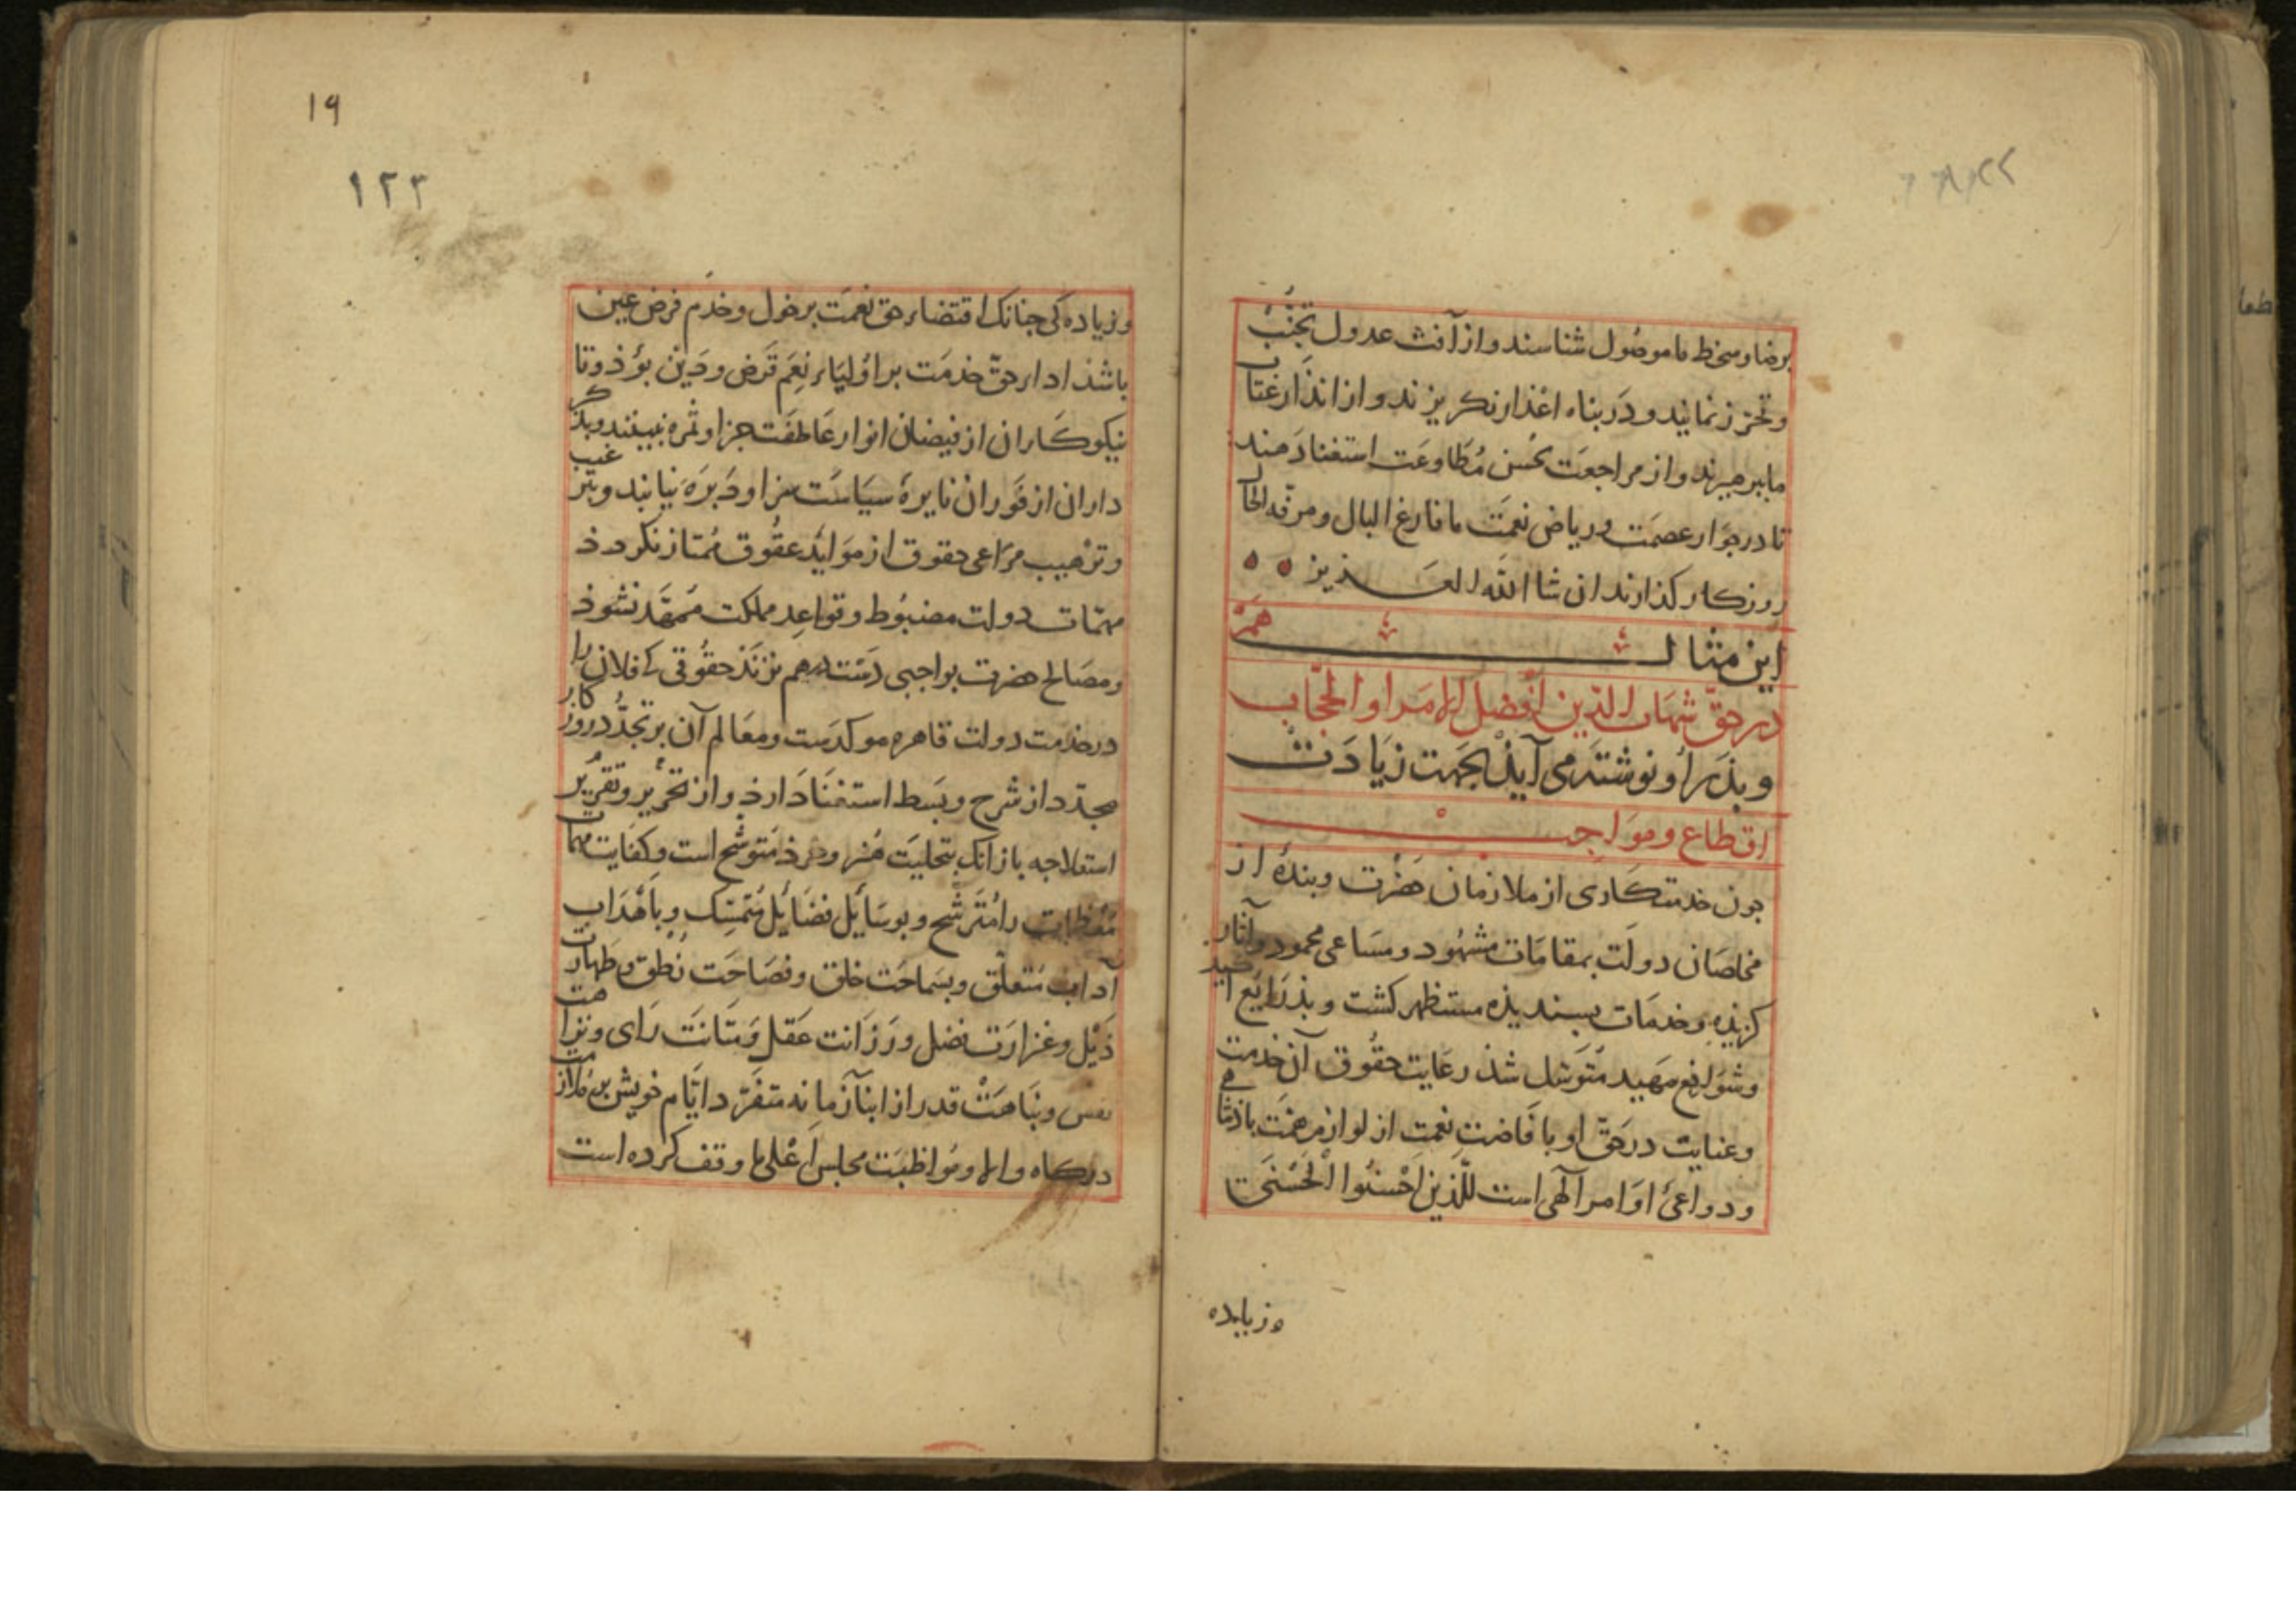 برضا و سخط ما موصول شناسند و از آفت عدول تجنّب
و تحرّز نمانید و در بناه اعذار نکریزند و از انذار عتاب
ما ببرهیزند و از مراجعت بحسن مُطَاوعَت استغنا دهند
تا در جوَار عصمَت و ریاض نعمَت ما فارغ البال و مرفّه الحال
روزکار کذارند ان شا الله العزیز
این مثال هَمْ
در حقّ شهاب الدّین افضل الامرا و الحجّاب
و بذر او نوشته می آیذ بجهت زیادت
اقطاع و مواجب
جون خدمتکاری از ملازمان حضرت و بندهٔ از
مخلصان دولت بمقامات مشهود و مساعی محمود و آثار
کزیذه و خدمات بسندیذه مستظهر کشت و بذرایع
و شوافع مهید متوسّل شذ رعایت حقوق آن خدمت
و عنایت در حقّ او با فاضت نعمت از لوازم
و دواعی اوامر آلهی است للّذین اَحْسنُوا الْحُسْنَی
وزیاده
١٩
١٢٣
و زیاده کی جنانک اقتضاء حق نعمَت بر خول و خدم فرض عین
باشذ اداء حقّ خدمَت بر اوُلیَاء نِعَم قَرض و دَین بوُذ و تا
نیکوکاران از فیضان انوار عَاطفَت جزا و ثمره نبینند و بذکر
داران از فَورانْ نایرهٔ سیَاسَت سزا و نیابند و بترغیب
و ترْهیب مراعی حقوق از عقُوق مُمتاز نکردذ
مهمّات دولت مضبُوط و قواعِد مملکت مُمهّد نشوذ
و مصَالح حضرت بواجبی دَست درهم نزنَذ حقُوقی کا فلان را
در خذمت دولت قاهره موکدَست و معَالم آن بر تجدُّد روزکار
مجدّد از شرح و بَسط استغنَا دَارذ و از تحریْر و تقریْر
استعلا جه بازانک بتحلیَت هُنر و خرذ مُتوشّح است و کفَایت مهمات
را مُترشّح و بوسَائِل فضَائِل مُتمسّک و بأهْدَاب
آداب مُتعلّق و بسَماحَت خلق و فصَاحَت نُطق و طهارت
ذَیْل و غزارَت فضل و رَزَانت عَقل وَ متَانَت رَای و نزاهت
نفس و نبَاهَتْ قدر از ابنآ زمانه متفرّد ایّام خویش بر ملازمت
درکاه والا و مُواظبَت مجلس اَعْلی ما وقف کرده است